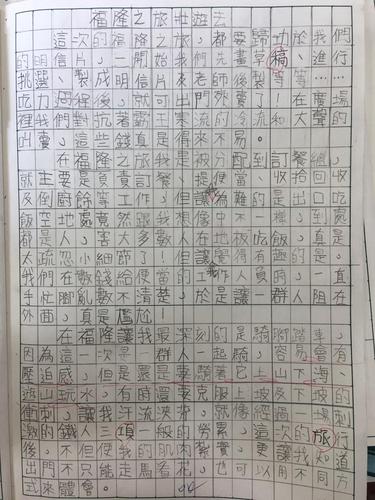 福隆之旅壯遊去
這次的福隆之旅,都要歸功於我們
的明信片,一開始我們先畫草稿、進行
挑選、製成明信片,老師後製等等……
吃力過程後,就可出門賣了!在廣場
裡我們對抗著霸王寒流的冷流和大聲的
叫賣,這些錢真是得來不易。
在福隆之旅我是被分配到訂餐組,
就主要是負責訂餐、提便當、收拾回收
及倒廚餘等工作,但讓為難的是出口吃
飯空地處竟然跟我想像中不一樣,到處
都是人,害大多數人在地板吃飯,真是
太疏忽小細節了!但讓我覺得有趣的是
我們在數錢給便當的工作人員時,一直
手忙腳亂數不清楚,於是讓一群人阻在
外面,真是尷尬!
在福隆讓我最深刻的是騎腳踏車,
因為這一次是一群人一起騎,容易會有
壓迫感,但是還是要騎著它上山下海、
遊山玩水,有時還要克服上坡及下坡的
衝刺,讓我汗流浹背,就像經過一場刺
激的鐵人三項一般的勞累,這次的旅行
後,不但使我的肌肉發實,更讓我知道
出門不只能走馬看花,也可以用不同方
式來體會。